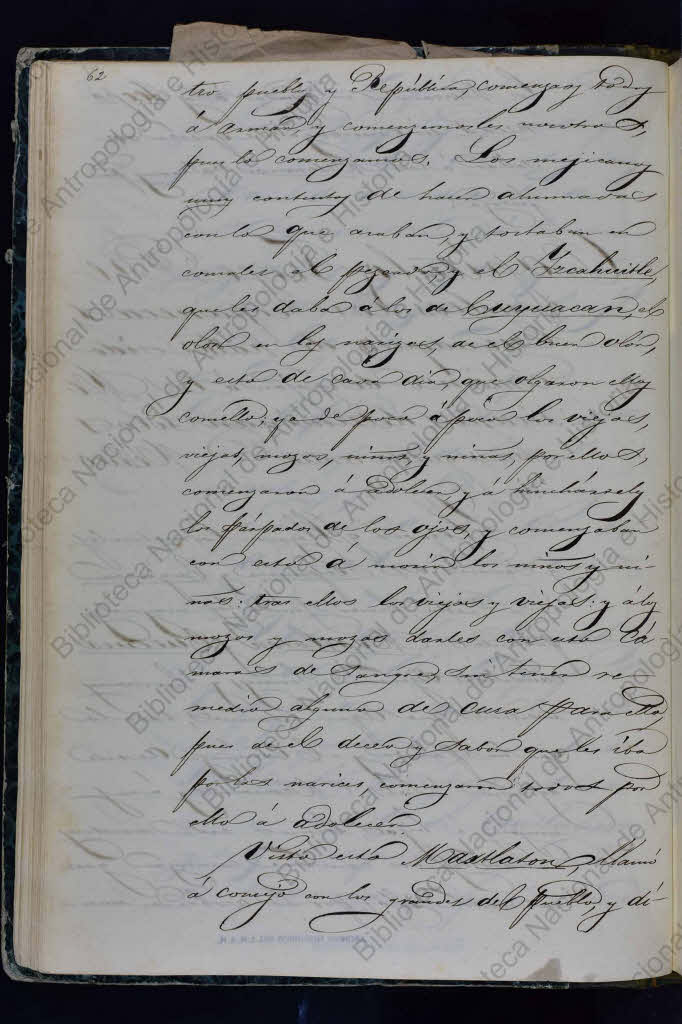 62
tro pueblo y República, comenzaron todos
á armar, y comenzemosles nosotros,
pues lo comenzamos. Los mejicanos
muy contentos de hacer ahumadas
con lo que asaban, y tostaban en
comales el pezcado, y el Yzcahuitle,
que les daba á los de Cuyuacan, el
olor en las narizes, de el buen olor,
y esto de cada dia, que olgaron ellos
comello, y a de poco á poco los viejos,
viejas, mozos, niños, y niñas, por ellos,
comenzaron á adolecer, y á hinchárseles
los párpados de los ojos, y comenzaban
con esto á morir los niños y ni-
ñas: tras ellos los viejos y viejas: y á los
mozos y mozas darles con esto Cá-
maras de sangre, sin tener re
medio alguno de cura para ello,
pues de el deceo y sabor que les iba
por las narices, comenzaron todos por
ello á adolecer.
Visto esto Maxtlaton, llamó
á consejo con los grandes del Pueblo, y di-
Biblioteca Nacional de Antropología e Historia